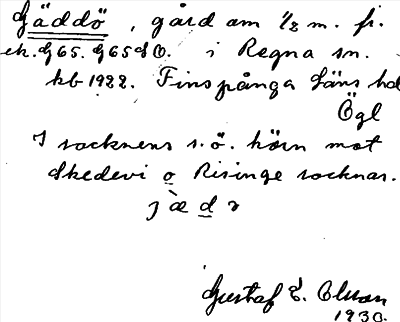 Gäddö, gård om 1/2 m. fr.
ek. G65. G65SO. i Regna sn.
kb 1922. Finspånga läns hd
Ögl
I socknens s.ö. hörn mot
Skedevi o Risinge socknar.
Gustaf E. Olsson
1930.